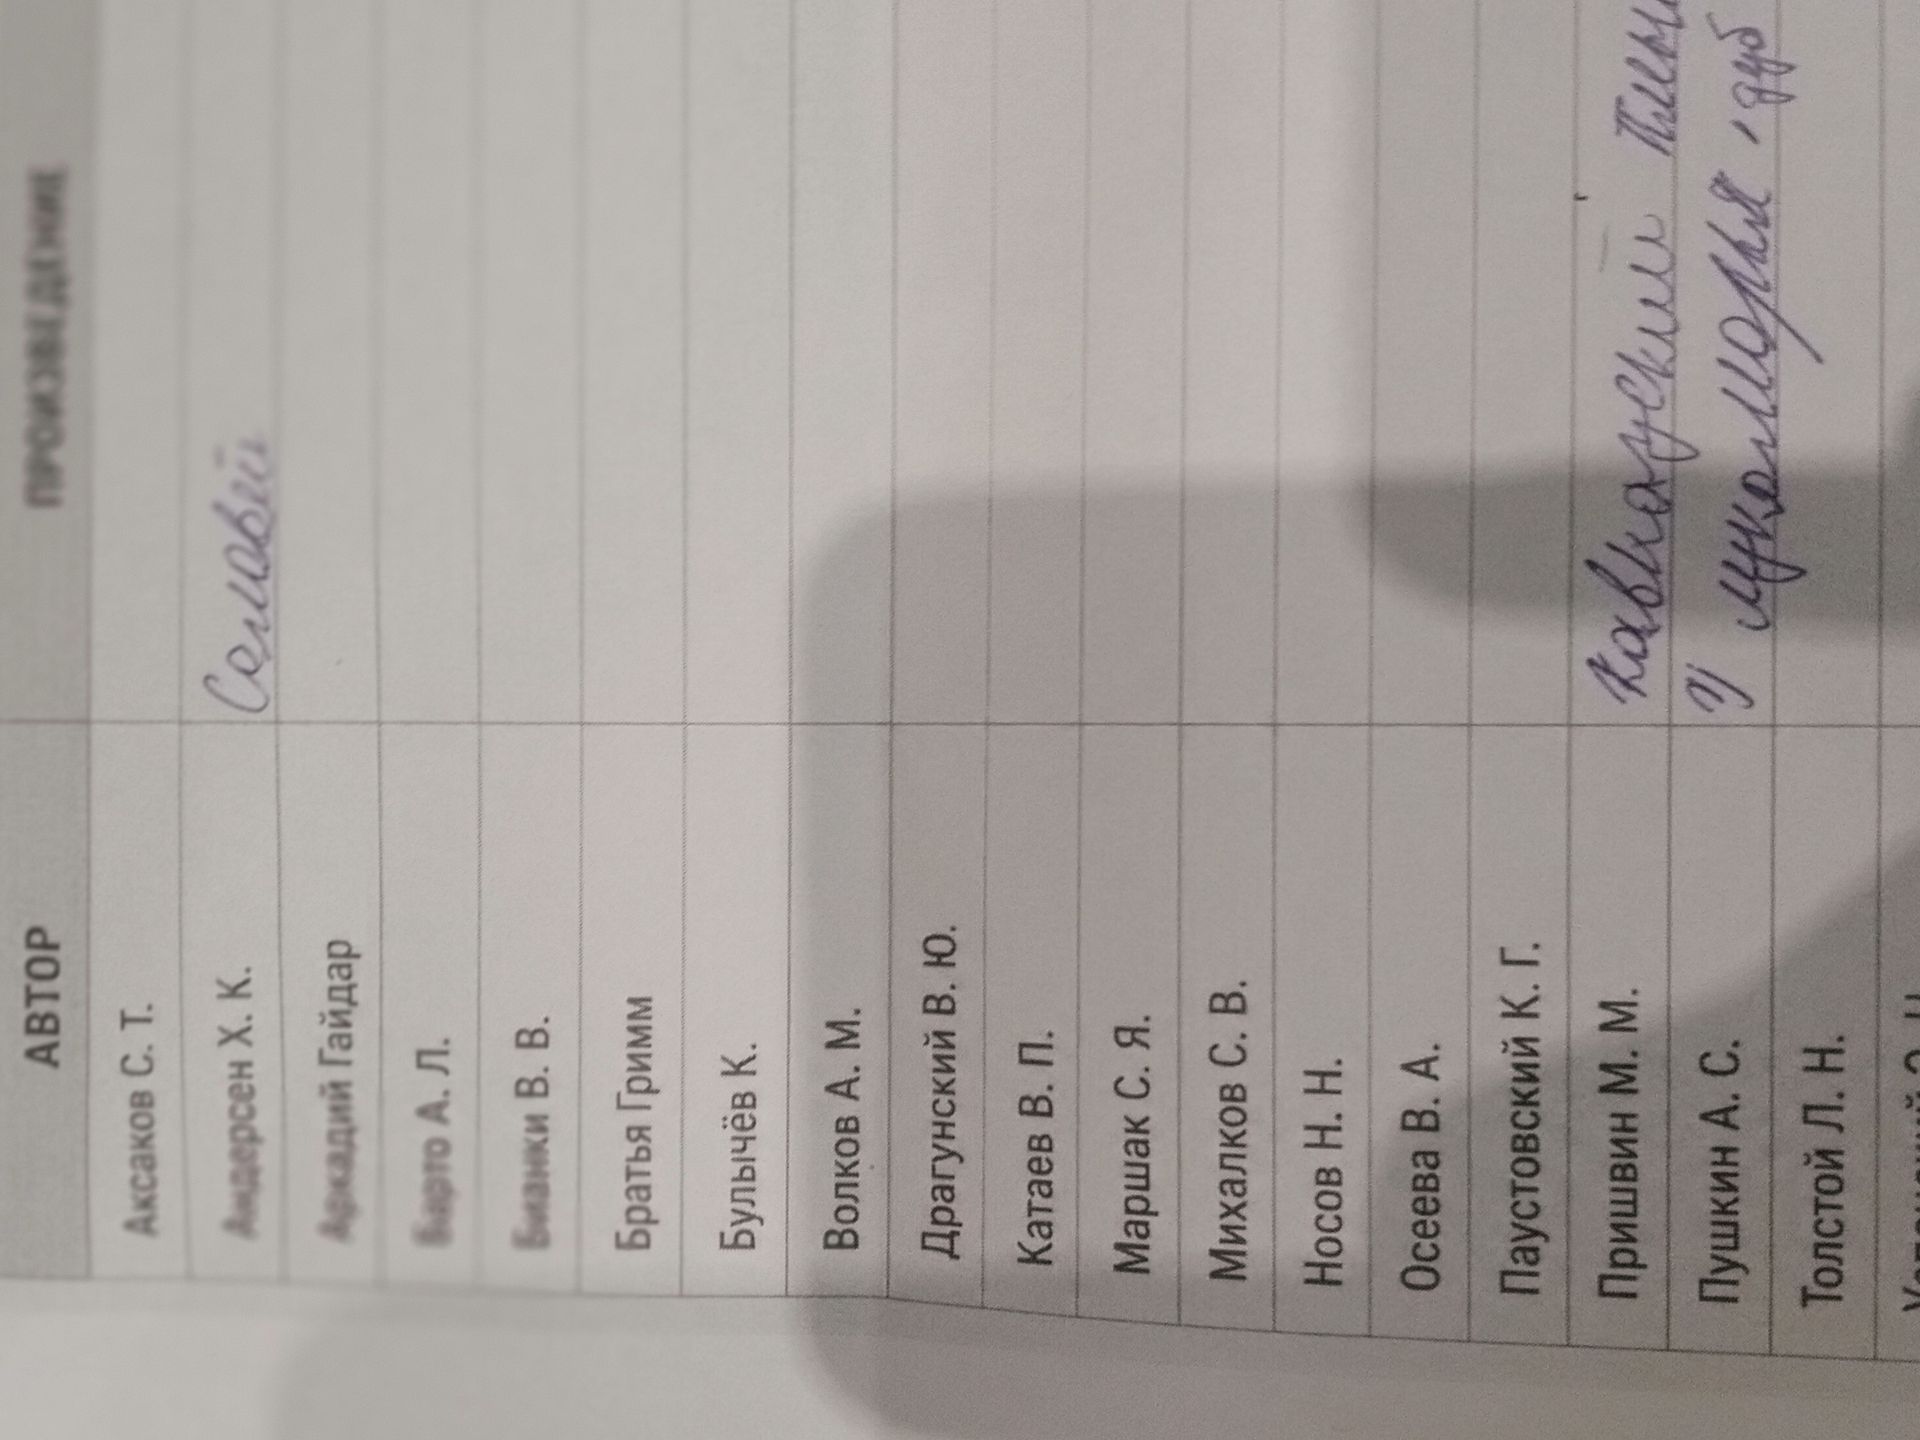 АВТОР ПРОИЗВЕДЕНИЕ
Аксаков С. Т.
Андерсен Х. К. Соловей
Аркадий Гайдар
Барто А. Л.
Бианки В. В.
Братья Гримм
Булычёв К.
Волков А. М.
Драгунский В. Ю.
Катаев В. П.
Маршак С. Я.
Михалков С. В.
Носов Н. Н.
Осеева В. А.
Паустовский К. Г.
Пришвин М. М. кавказский
Пушкин А. С. У лукоморья, дуб
Толстой Л. Н.